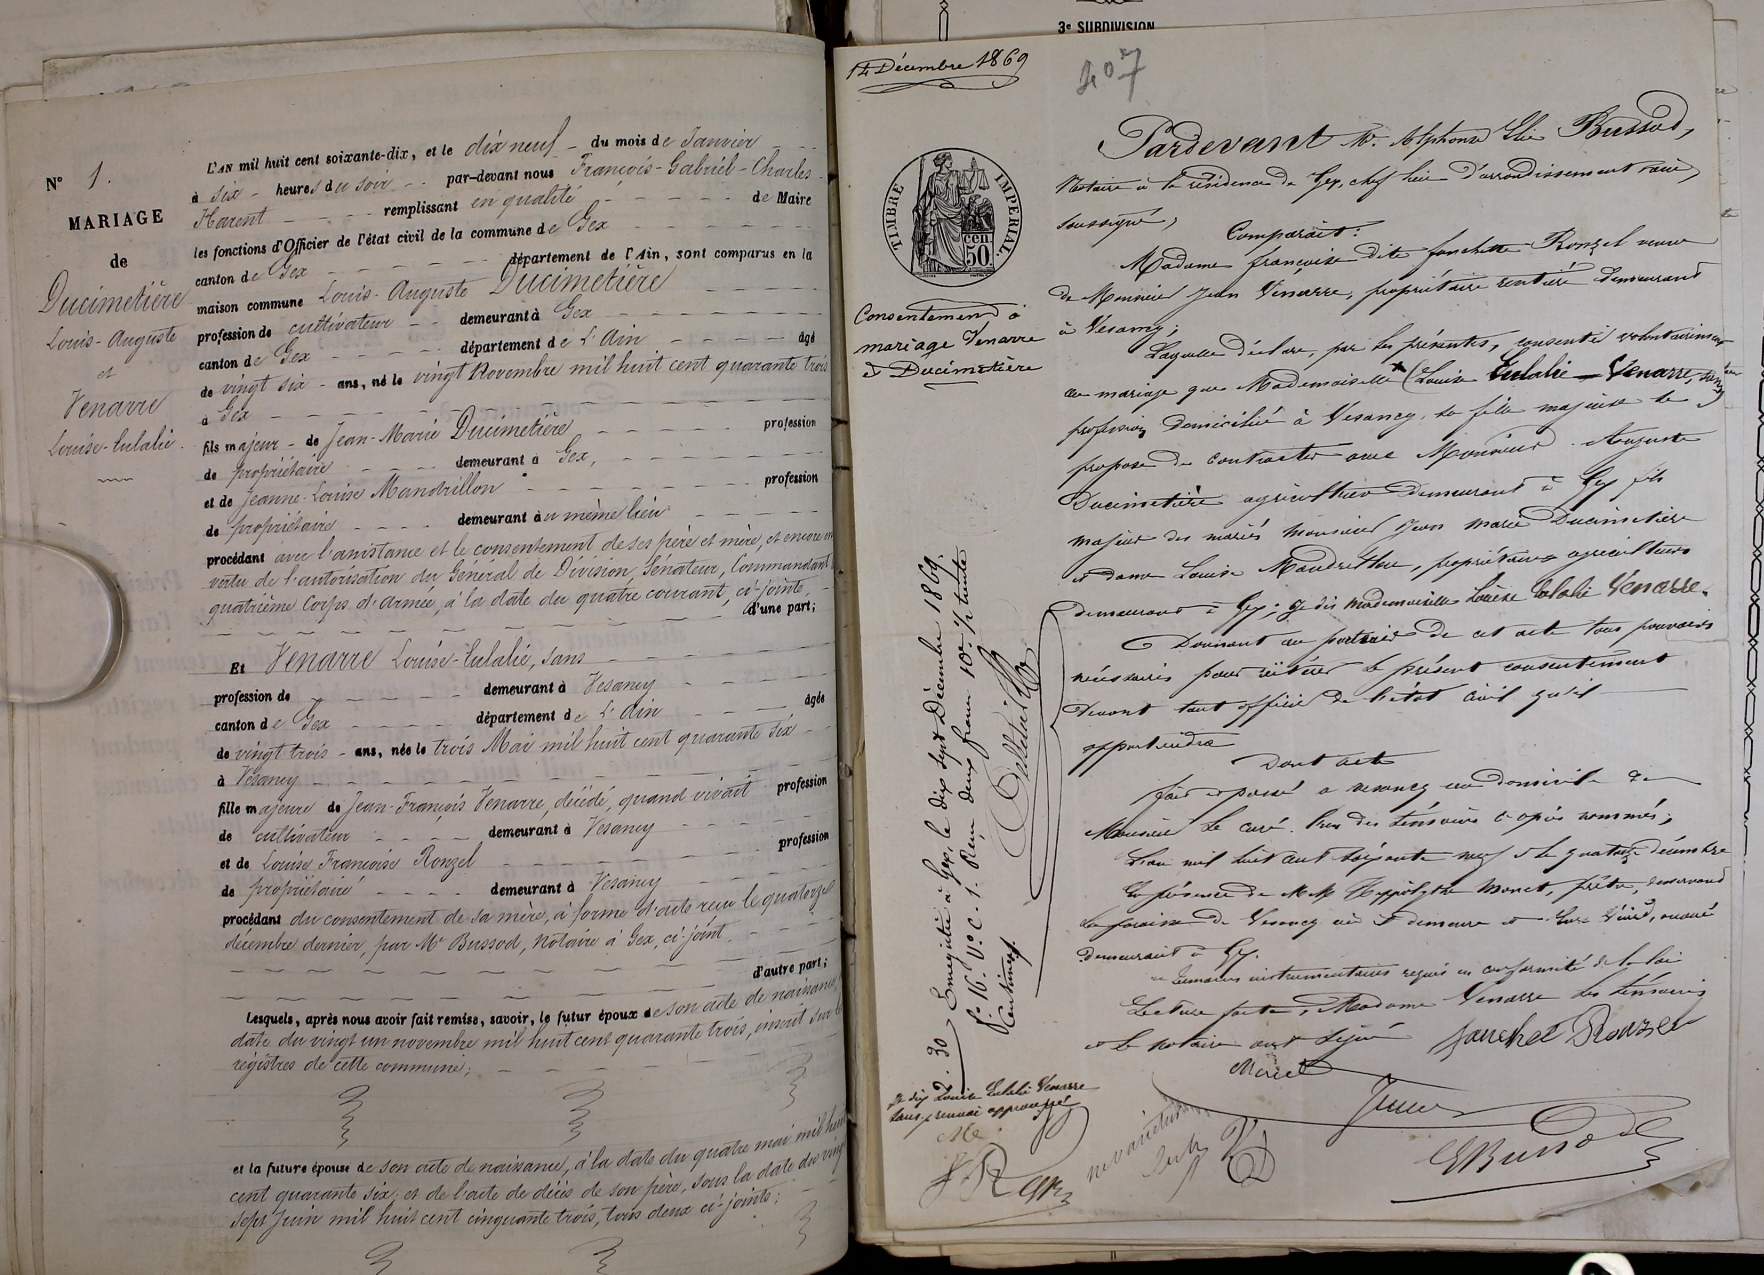 N° 1.
MARIAGE
de
Ducimetière
Louis-Auguste
et
Venarre
Louise-Eulalie.
L'AN mil huit cent soixante-dix, et le dix neuf du mois de Janvier
à six heures du soir par-devant nous François-Gabriel-Charles
Harent remplissant en qualité de Maire
les fonctions d'Officier de l'état civil de la commune de Gex
canton de Gex département de l'Ain, sont comparus en la
maison commune Louis-Auguste Ducimetière
profession de cultivateur demeurant à Gex
canton de Gex département de L'Ain âgé
de vingt six ans, né le vingt Novembre mil huit cent quarante trois
à Gex
fils majeur de Jean-Marie Ducimetière profession
de propriétaire demeurant à Gex,
et de Jeanne-Louise Mandrillon profession
de propriétaire demeurant au même lieu
procédant avec l'assistance et le consentement de ses père et mère, et encore en
vertu de l'autorisation du Général de Division, Sénateur, Commandant
quatrième Corps d'armée, à la date du quatre courant, ci-jointe,
d'une part;
Et Venarre Louise-Eulalie, sans
profession de demeurant à Vesancy
canton de Gex département de L'Ain âgée
de vingt trois ans, née le trois Mai mil huit cent quarante six
à Vesancy
fille majeure de Jean-François Venarre, décédé, quand vivait profession
de cultivateur demeurant à Vesancy
et de Louise Françoise Ronzel profession
de propriétaire demeurant à Vesancy
procédant du consentement de sa mère, à forme d'acte reçu le quatorze
décembre dernier, par Me Bussod, Notaire à Gex, ci-joint
d'autre part;
Lesquels, après nous avoir fait remise, savoir, le futur époux de son acte de naissance,
date du vingt un novembre mil huit cent quarante trois, inscrit sur les
registres de cette commune;
et la future épouse de son acte de naissance, à la date du quatre mai mil huit
cent quarante six; et de l'acte de décès de son père, sous la date du vingt
sept Juin mil huit cent cinquante trois, tous deux ci-joints;
3e SUBDIVISION
14 Décembre 1869
407
TIMBRE IMPERIAL
50 cen.
Consentement à
mariage Venarre
et Ducimetière
Pardevant Me Alphonse Elie Bussod,
Notaire à la résidence de Gex, chef lieu d'arrondissement
soussigné,
Comparait:
Madame françoise dite fanchette Ronzel veuve
de Monsieur Jean Venarre, propriétaire rentière demeurant
à Vesancy;
Laquelle déclare, par les présentes, consentir volontairement
au mariage que Mademoiselle Louise Eulalie Venarre, sans
profession, domiciliée à Vesancy, sa fille majeure se
propose de contracter avec Monsieur Auguste
Ducimetière agriculteur demeurant à Gex fils
majeur des mariés Monsieur Jean Marie Ducimetière
et dame Louise Mandrillon, propriétaires agriculteurs
demeurant à Gex; Mademoiselle Louise Eulalie Venarre.
Donnant au porteur de cet acte tous pouvoirs
nécessaires pour réitérer le présent consentement
devant tout officier de l'état civil qu'il
appartiendra
Dont acte
fait et passé à Vesancy au domicile de
Monsieur le curé, l'un des témoins ci après nommés;
L'an mil huit cent soixante neuf et le quatorze décembre
En présence de M.M. Hippolyte Monet, prêtre, desservant
la paroisse de Vesancy où il demeure et
demeurant à Gex.
témoins instrumentaires requis en conformité de la loi
Lecture faite, Madame Venarre les témoins
et le notaire ont signé
fanchet Ronzel
EBussod
Enregistré à Gex, le dix sept Décembre 1869.
fo. 16. Vo. C. 1. Reçu deux francs 10es 1/2 trente
Centimes.
2.30
Louise Eulalie Venarre
sans, renvoi approuvé